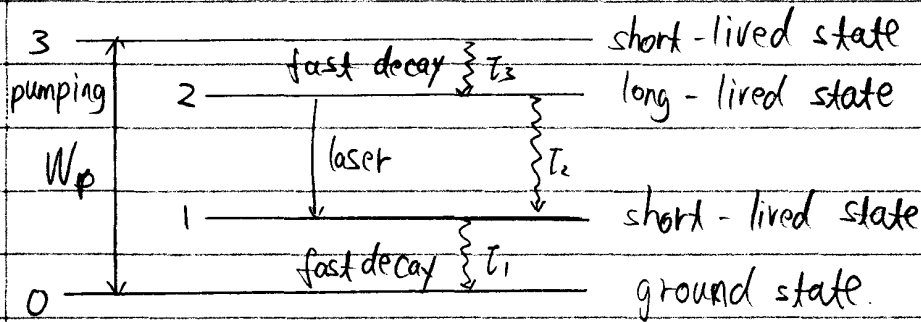 3 short-lived state
fast decay τ₃
pumping 2 long-lived state
Wp laser τ₂
1 short-lived state
fast decay τ₁
0 ground state.